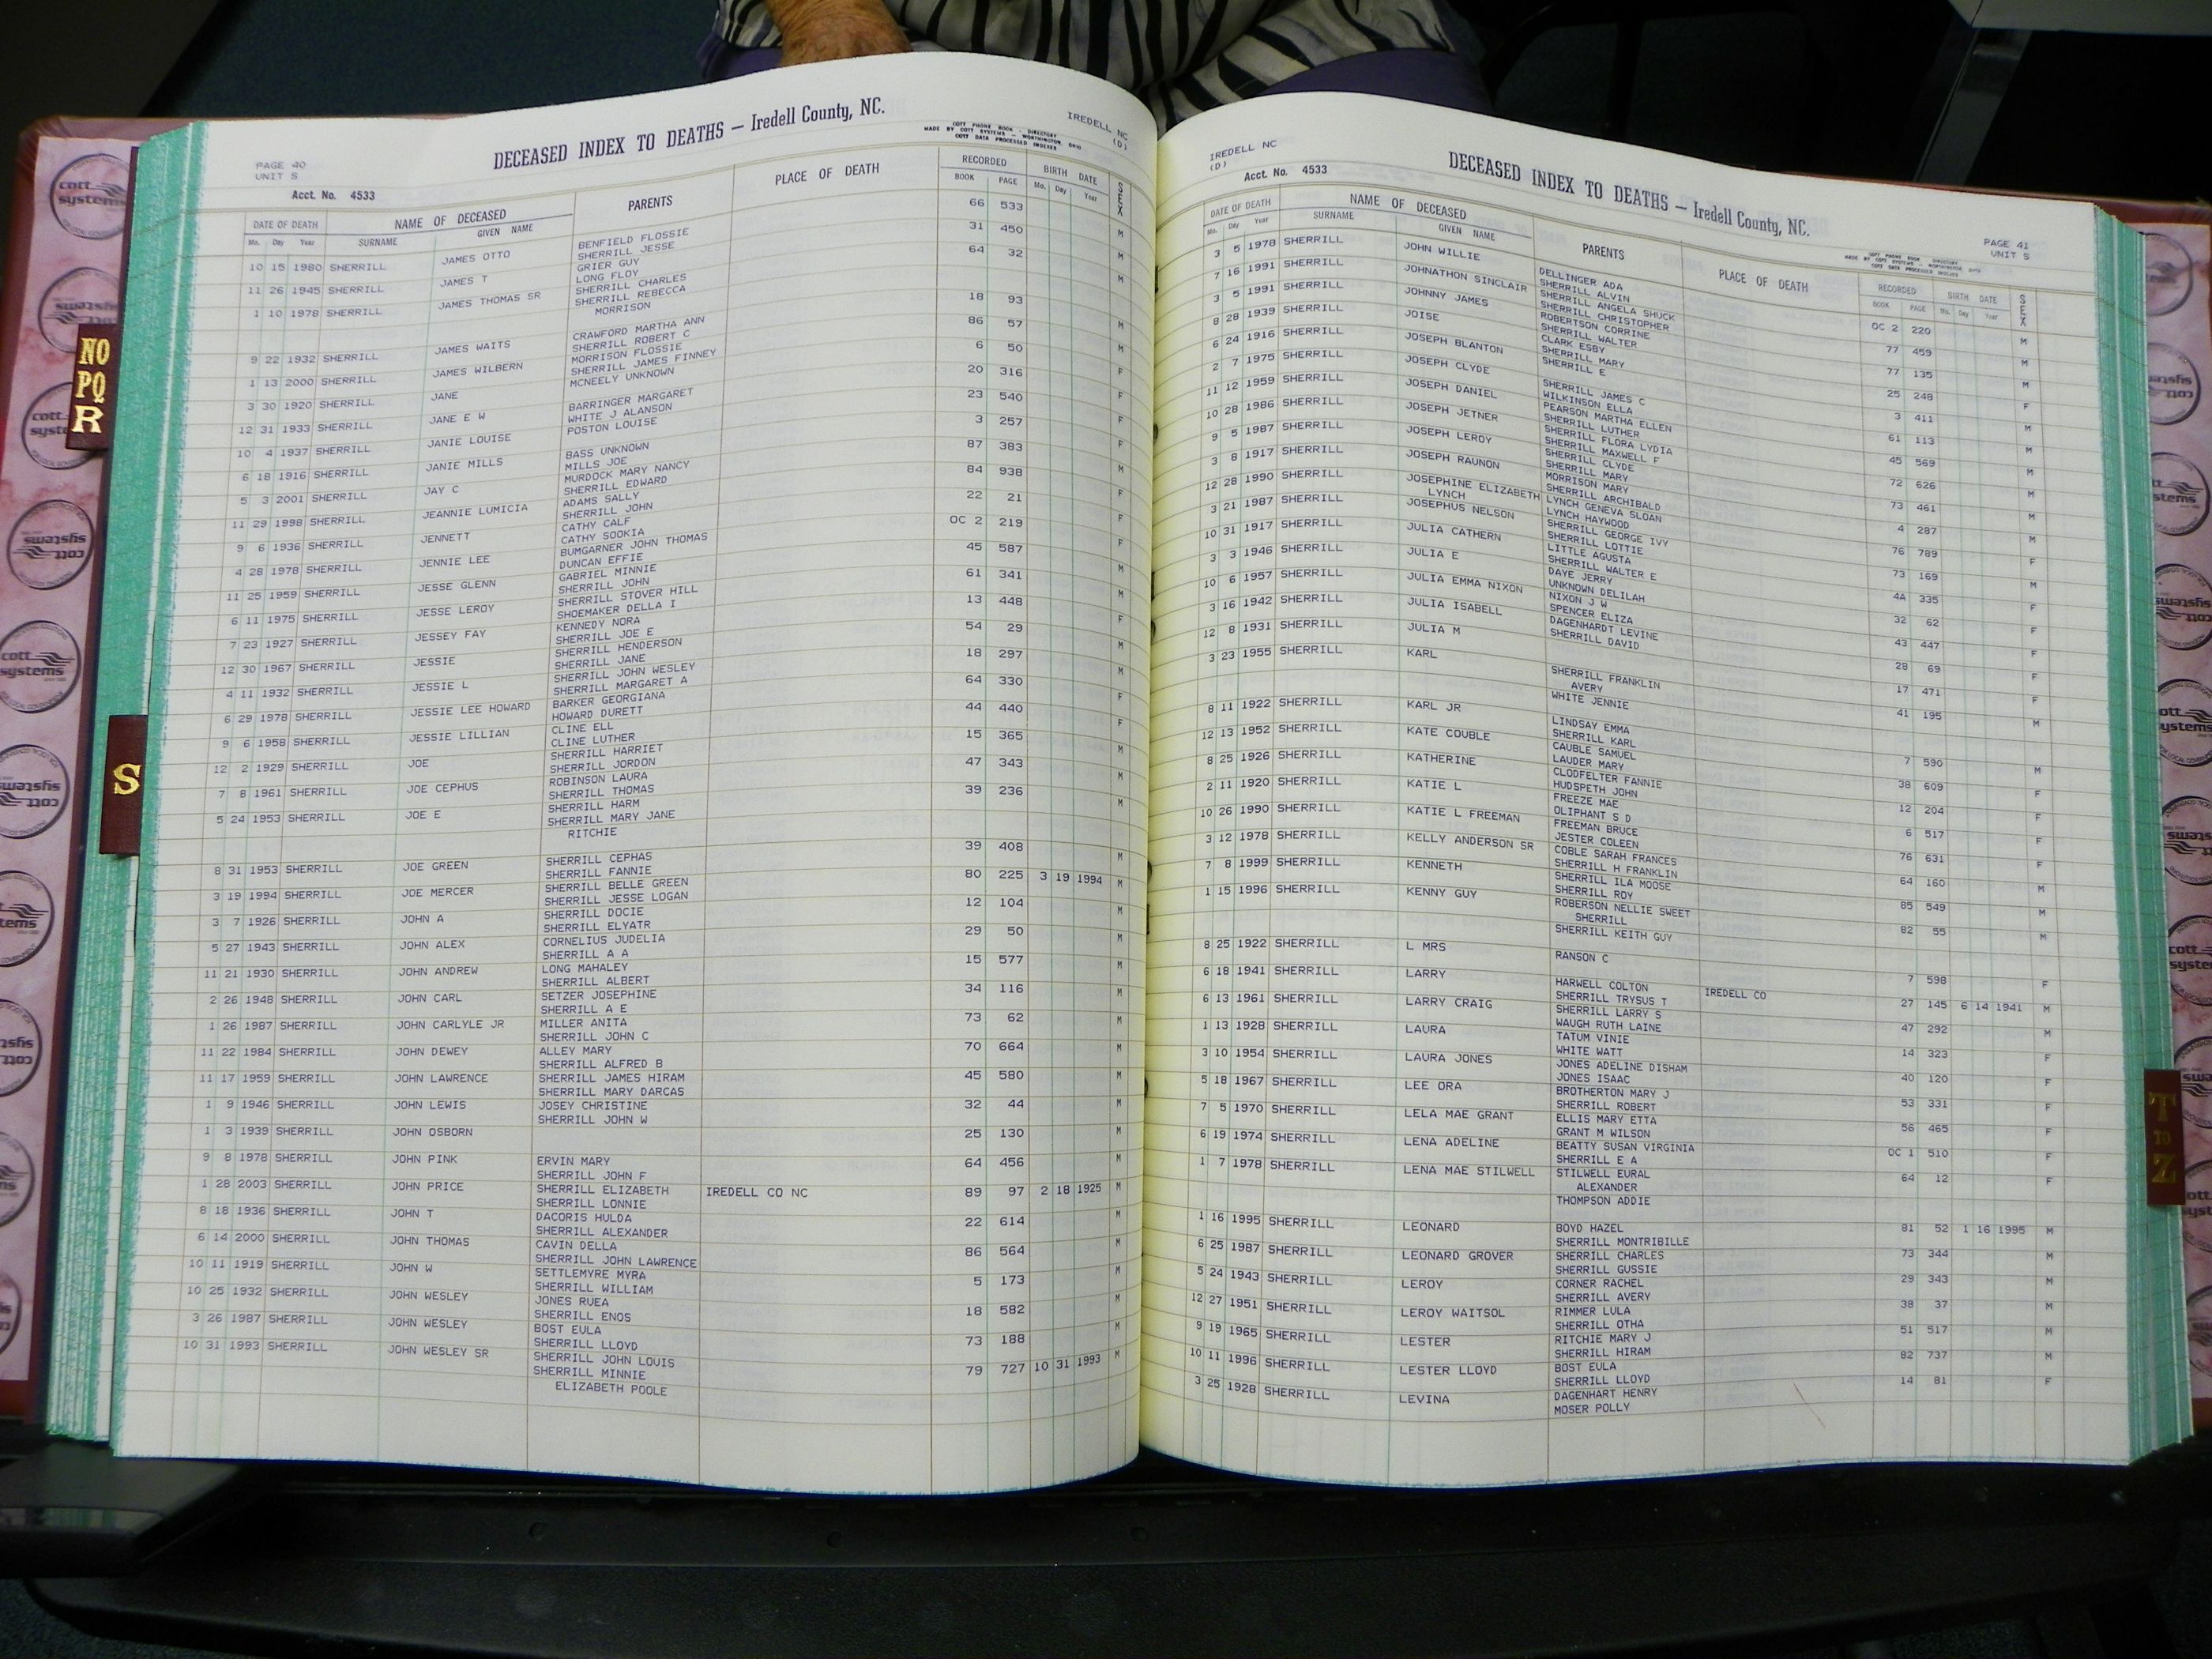 PAGE 40
UNIT S
DECEASED INDEX TO DEATHS — Iredell County, NC.
COTT PHONE BOOK - DIRECTORY
MADE BY COTT SYSTEMS - WORTHINGTON, OHIO
COTT DATA PROCESSED INDEXES
IREDELL NC
(D)
Acct. No. 4533
DATE OF DEATH NAME OF DECEASED PARENTS PLACE OF DEATH RECORDED BIRTH DATE SEX
Mo. Day Year SURNAME GIVEN NAME BOOK PAGE Mo. Day Year
10 15 1980 SHERRILL JAMES OTTO BENFIELD FLOSSIE 66 533 M
SHERRILL JESSE
11 26 1945 SHERRILL JAMES T GRIER GUY 31 450 M
LONG FLOY
1 10 1978 SHERRILL JAMES THOMAS SR SHERRILL CHARLES 64 32 M
SHERRILL REBECCA
MORRISON
9 22 1932 SHERRILL JAMES WAITS CRAWFORD MARTHA ANN 18 93 M
SHERRILL ROBERT C
1 13 2000 SHERRILL JAMES WILBERN MORRISON FLOSSIE 86 57 M
SHERRILL JAMES FINNEY
3 30 1920 SHERRILL JANE MCNEELY UNKNOWN 6 50 F
12 31 1933 SHERRILL JANE E W BARRINGER MARGARET 20 316 F
WHITE J ALANSON
10 4 1937 SHERRILL JANIE LOUISE POSTON LOUISE 23 540 F
6 18 1916 SHERRILL JANIE MILLS BASS UNKNOWN 3 257 F
MILLS JOE
5 3 2001 SHERRILL JAY C MURDOCK MARY NANCY 87 383 M
SHERRILL EDWARD
11 29 1998 SHERRILL JEANNIE LUMICIA ADAMS SALLY 84 938 F
SHERRILL JOHN
9 6 1936 SHERRILL JENNETT CATHY CALF 22 21 F
CATHY SOOKIA
4 28 1978 SHERRILL JENNIE LEE BUMGARNER JOHN THOMAS OC 2 219 F
DUNCAN EFFIE
11 25 1959 SHERRILL JESSE GLENN GABRIEL MINNIE 45 587 M
SHERRILL JOHN
6 11 1975 SHERRILL JESSE LEROY SHERRILL STOVER HILL 61 341 M
SHOEMAKER DELLA I
7 23 1927 SHERRILL JESSEY FAY KENNEDY NORA 13 448 F
SHERRILL JOE E
12 30 1967 SHERRILL JESSIE SHERRILL HENDERSON 54 29 M
SHERRILL JANE
4 11 1932 SHERRILL JESSIE L SHERRILL JOHN WESLEY 18 297 M
SHERRILL MARGARET A
6 29 1978 SHERRILL JESSIE LEE HOWARD BARKER GEORGIANA 64 330 F
HOWARD DURETT
9 6 1958 SHERRILL JESSIE LILLIAN CLINE ELL 44 440 F
CLINE LUTHER
12 2 1929 SHERRILL JOE SHERRILL HARRIET 15 365 M
SHERRILL JORDON
7 8 1961 SHERRILL JOE CEPHUS ROBINSON LAURA 47 343 M
SHERRILL THOMAS
5 24 1953 SHERRILL JOE E SHERRILL HARM 39 236 M
SHERRILL MARY JANE
RITCHIE
8 31 1953 SHERRILL JOE GREEN SHERRILL CEPHAS 39 408 M
SHERRILL FANNIE
3 19 1994 SHERRILL JOE MERCER SHERRILL BELLE GREEN 80 225 3 19 1994 M
SHERRILL JESSE LOGAN
3 7 1926 SHERRILL JOHN A SHERRILL DOCIE 12 104 M
SHERRILL ELYATR
5 27 1943 SHERRILL JOHN ALEX CORNELIUS JUDELIA 29 50 M
SHERRILL A A
11 21 1930 SHERRILL JOHN ANDREW LONG MAHALEY 15 577 M
SHERRILL ALBERT
2 26 1948 SHERRILL JOHN CARL SETZER JOSEPHINE 34 116 M
SHERRILL A E
1 26 1987 SHERRILL JOHN CARLYLE JR MILLER ANITA 73 62 M
SHERRILL JOHN C
11 22 1984 SHERRILL JOHN DEWEY ALLEY MARY 70 664 M
SHERRILL ALFRED B
11 17 1959 SHERRILL JOHN LAWRENCE SHERRILL JAMES HIRAM 45 580 M
SHERRILL MARY DARCAS
1 9 1946 SHERRILL JOHN LEWIS JOSEY CHRISTINE 32 44 M
SHERRILL JOHN W
1 3 1939 SHERRILL JOHN OSBORN 25 130 M
9 8 1978 SHERRILL JOHN PINK ERVIN MARY 64 456 M
SHERRILL JOHN F
1 28 2003 SHERRILL JOHN PRICE SHERRILL ELIZABETH IREDELL CO NC 89 97 2 18 1925 M
SHERRILL LONNIE
8 18 1936 SHERRILL JOHN T DACORIS HULDA 22 614 M
SHERRILL ALEXANDER
6 14 2000 SHERRILL JOHN THOMAS CAVIN DELLA 86 564 M
SHERRILL JOHN LAWRENCE
10 11 1919 SHERRILL JOHN W SETTLEMYRE MYRA 5 173 M
SHERRILL WILLIAM
10 25 1932 SHERRILL JOHN WESLEY JONES RUEA 18 582 M
SHERRILL ENOS
3 26 1987 SHERRILL JOHN WESLEY BOST EULA 73 188 M
SHERRILL LLOYD
10 31 1993 SHERRILL JOHN WESLEY SR SHERRILL JOHN LOUIS 79 727 10 31 1993 M
SHERRILL MINNIE
ELIZABETH POOLE
IREDELL NC
(D)
DECEASED INDEX TO DEATHS — Iredell County, NC.
COTT PHONE BOOK - DIRECTORY
MADE BY COTT SYSTEMS - WORTHINGTON, OHIO
COTT DATA PROCESSED INDEXES
PAGE 41
UNIT S
Acct. No. 4533
DATE OF DEATH NAME OF DECEASED PARENTS PLACE OF DEATH RECORDED BIRTH DATE SEX
Mo. Day Year SURNAME GIVEN NAME BOOK PAGE Mo. Day Year
3 5 1978 SHERRILL JOHN WILLIE DELLINGER ADA OC 2 220 M
SHERRILL ALVIN
7 16 1991 SHERRILL JOHNATHON SINCLAIR SHERRILL ANGELA SHUCK 77 459 M
SHERRILL CHRISTOPHER
3 5 1991 SHERRILL JOHNNY JAMES ROBERTSON CORRINE 77 135 M
SHERRILL WALTER
8 28 1939 SHERRILL JOISE CLARK ESBY 25 248 F
SHERRILL MARY
6 24 1916 SHERRILL JOSEPH BLANTON SHERRILL E 3 411 M
2 7 1975 SHERRILL JOSEPH CLYDE SHERRILL JAMES C 61 113 M
WILKINSON ELLA
11 12 1959 SHERRILL JOSEPH DANIEL PEARSON MARTHA ELLEN 45 569 M
SHERRILL LUTHER
10 28 1986 SHERRILL JOSEPH JETNER SHERRILL FLORA LYDIA 72 626 M
SHERRILL MAXWELL F
9 5 1987 SHERRILL JOSEPH LEROY SHERRILL CLYDE 73 461 M
SHERRILL MARY
3 8 1917 SHERRILL JOSEPH RAUNON MORRISON MARY 4 287 M
SHERRILL ARCHIBALD
12 28 1990 SHERRILL JOSEPHINE ELIZABETH LYNCH GENEVA SLOAN 76 789 F
LYNCH LYNCH HAYWOOD
3 21 1987 SHERRILL JOSEPHUS NELSON SHERRILL GEORGE IVY 73 169 M
SHERRILL LOTTIE
10 31 1917 SHERRILL JULIA CATHERN LITTLE AGUSTA 4A 335 F
SHERRILL WALTER E
3 3 1946 SHERRILL JULIA E DAYE JERRY 32 62 F
UNKNOWN DELILAH
10 6 1957 SHERRILL JULIA EMMA NIXON NIXON J W 43 447 F
SPENCER ELIZA
3 16 1942 SHERRILL JULIA ISABELL DAGENHARDT LEVINE 28 69 F
SHERRILL DAVID
12 8 1931 SHERRILL JULIA M 17 471 F
3 23 1955 SHERRILL KARL SHERRILL FRANKLIN 41 195 M
AVERY
WHITE JENNIE
8 11 1922 SHERRILL KARL JR LINDSAY EMMA 7 590 M
SHERRILL KARL
12 13 1952 SHERRILL KATE COUBLE CAUBLE SAMUEL 38 609 F
LAUDER MARY
8 25 1926 SHERRILL KATHERINE CLODFELTER FANNIE 12 204 F
HUDSPETH JOHN
2 11 1920 SHERRILL KATIE L FREEZE MAE 6 517 F
OLIPHANT S D
10 26 1990 SHERRILL KATIE L FREEMAN FREEMAN BRUCE 76 631 F
JESTER COLEEN
3 12 1978 SHERRILL KELLY ANDERSON SR COBLE SARAH FRANCES 64 160 M
SHERRILL H FRANKLIN
7 8 1999 SHERRILL KENNETH SHERRILL ILA MOOSE 85 549 M
SHERRILL ROY
1 15 1996 SHERRILL KENNY GUY ROBERSON NELLIE SWEET 82 55 M
SHERRILL
SHERRILL KEITH GUY
8 25 1922 SHERRILL L MRS RANSON C 7 598 F
6 18 1941 SHERRILL LARRY HARWELL COLTON IREDELL CO 27 145 6 14 1941 M
SHERRILL TRYSUS T
6 13 1961 SHERRILL LARRY CRAIG SHERRILL LARRY S 47 292 M
WAUGH RUTH LAINE
1 13 1928 SHERRILL LAURA TATUM VINIE 14 323 F
WHITE WATT
3 10 1954 SHERRILL LAURA JONES JONES ADELINE DISHAM 40 120 F
JONES ISAAC
5 18 1967 SHERRILL LEE ORA BROTHERTON MARY J 53 331 F
SHERRILL ROBERT
7 5 1970 SHERRILL LELA MAE GRANT ELLIS MARY ETTA 56 465 F
GRANT M WILSON
6 19 1974 SHERRILL LENA ADELINE BEATTY SUSAN VIRGINIA OC 1 510 F
SHERRILL E A
1 7 1978 SHERRILL LENA MAE STILWELL STILWELL EURAL 64 12 F
ALEXANDER
THOMPSON ADDIE
1 16 1995 SHERRILL LEONARD BOYD HAZEL 81 52 1 16 1995 M
SHERRILL MONTRIBILLE
6 25 1987 SHERRILL LEONARD GROVER SHERRILL CHARLES 73 344 M
SHERRILL GUSSIE
5 24 1943 SHERRILL LEROY CORNER RACHEL 29 343 M
SHERRILL AVERY
12 27 1951 SHERRILL LEROY WAITSOL RIMMER LULA 38 37 M
SHERRILL OTHA
9 19 1965 SHERRILL LESTER RITCHIE MARY J 51 517 M
SHERRILL HIRAM
10 11 1996 SHERRILL LESTER LLOYD BOST EULA 82 737 M
SHERRILL LLOYD
3 25 1928 SHERRILL LEVINA DAGENHART HENRY 14 81 F
MOSER POLLY
NO
PQ
R
S
T
TO
Z
cott
systems